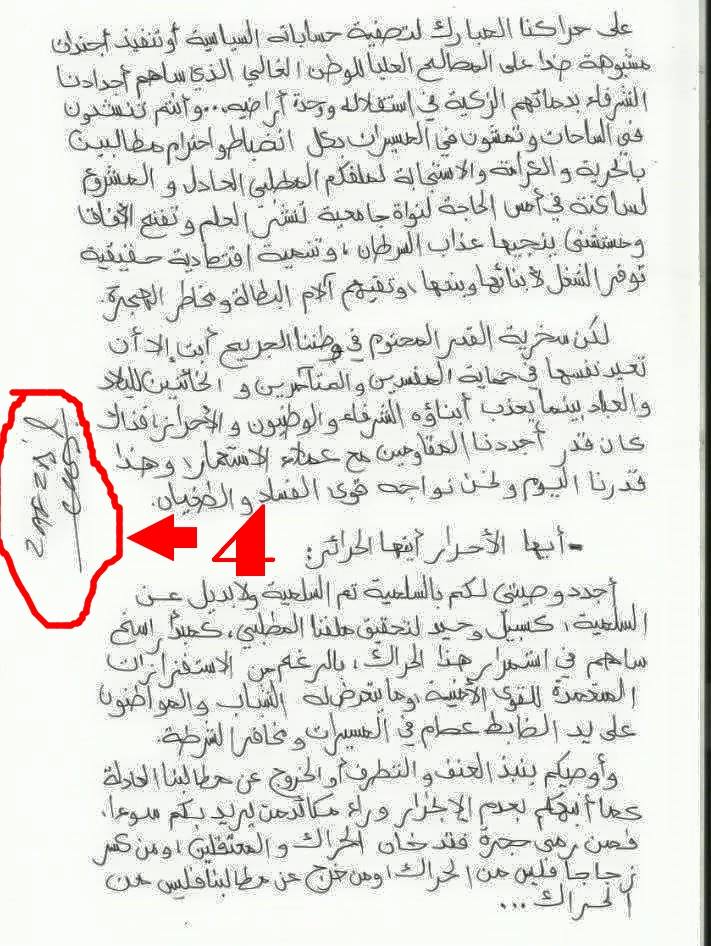 على حراكنا المبارك لتصفية حساباته السياسية أو تنفيذ أجندات
مشبوهة ضدا على المصالح العليا للوطن الغالي الذي ساهم أجدادنا
الشرفاء بدمائهم الزكية في استقلاله ووحدة أراضيه... وأنتم تنشدون
في الساحات وتمشون في المسيرات بكل انضباط واحترام مطالبين
بالحرية والكرامة والاستجابة لملفكم المطلبي العادل والمشروع
لساكنة في أمس الحاجة لنواة جامعية تنشر العلم وتفتح الآفاق
ومستشفى ينجيها عذاب السرطان، وتنمية اقتصادية حقيقية
توفر الشغل لأبنائها وبناتها، وتقيهم آلام البطالة ومخاطر الهجرة.
لكن سخرية القدر المحتوم في وطننا الجريح أبت إلا أن
تعيد نفسها في حماية المفسدين والمتآمرين والخائنين للبلاد
والعباد بينما يعذب أبناؤه الشرفاء والوطنيون والأحرار، فذاك
كان قدر أجدادنا المقاومين مع عملاء الاستعمار، وهذا
قدرنا اليوم ونحن نواجه قوى الفساد والطغيان.
- أيها الأحرار أيتها الحرائر:
أجدد وصيتي لكم بالسلمية ثم السلمية ولا بديل عن
السلمية، كسبيل وحيد لتحقيق ملفنا المطلبي، كمبدأ راسخ
ساهم في استمرار هذا الحراك، بالرغم من الاستفزازات
المتعمدة للقوى الأمنية وما يتعرض له الشباب والمواطنون
على يد الضابط عصام في المسيرات ومخافر الشرطة.
وأوصيكم بنبذ العنف والتطرف أو الخروج عن مطالبنا العادلة
كما أنبهكم بعدم الانجرار وراء مكائد من يريد بكم سوءا،
فمن رمى حجرة فقد خان الحراك والمعتقلين، ومن كسر
زجاجا فليس من الحراك، ومن خرج عن مطالبنا فليس من
الحراك...
4